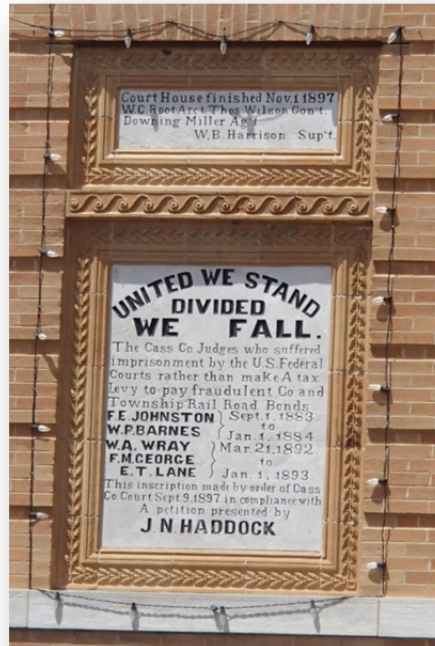 Court House finished Nov. 1 1897
W.C. Root Arct. Thos Wilson Con't.
Downing Miller Ag't
W.B. Harrison Sup't.
UNITED WE STAND
DIVIDED
WE FALL.
The Cass Co Judges who suffered
imprisonment by the U.S. Federal
Courts rather than make A tax
Levy to pay fraudulent Co and
Township Rail Road Bonds
F.E. JOHNSTON } Sept. 1, 1883
to
W.P. BARNES } Jan. 1, 1884
W.A. WRAY } Mar. 21, 1892
F.M. GEORGE } to
E.T. LANE } Jan. 1, 1893
This inscription made by order of Cass
Co Court Sept. 9, 1897 in compliance with
A petition presented by
J.N HADDOCK